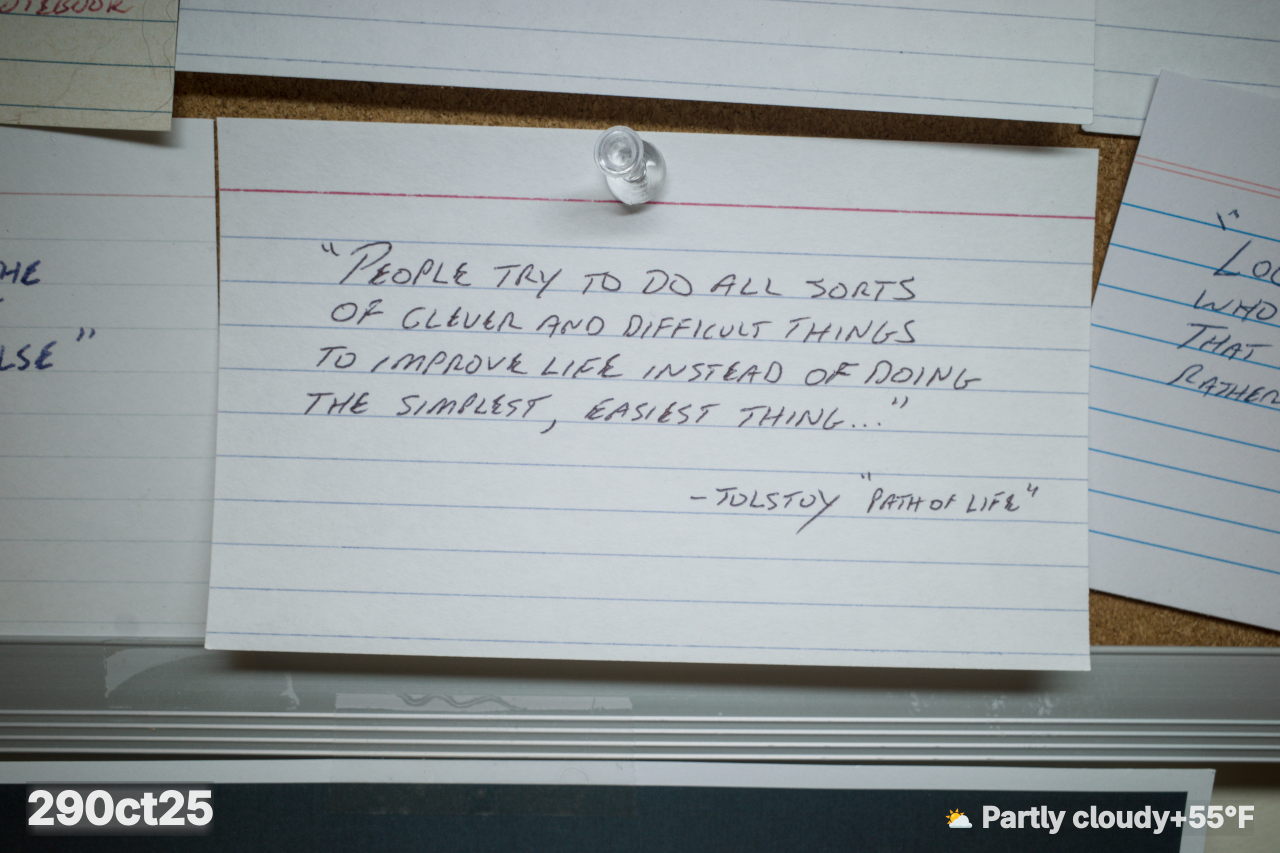 NOTEBOOK
HE
LSE"
"PEOPLE TRY TO DO ALL SORTS
OF CLEVER AND DIFFICULT THINGS
TO IMPROVE LIFE INSTEAD OF DOING
THE SIMPLEST, EASIEST THING..."
-TOLSTOY "PATH OF LIFE"
"
LOO
WHO
THAT
RATHER
29Oct25
Partly cloudy+55°F